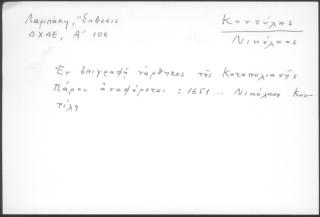 Λαμπάκη, "Έκθεσις
ΔΧΑΕ, Α' 106
Κοντύλης
Νικόλαος
Ἐν ἐπιγραφῇ νάρθηκος τῆς Καταπολιανῆς
Πάρου ἀναφέρεται : 1651 ... Νικόλαος Κον
τύλη